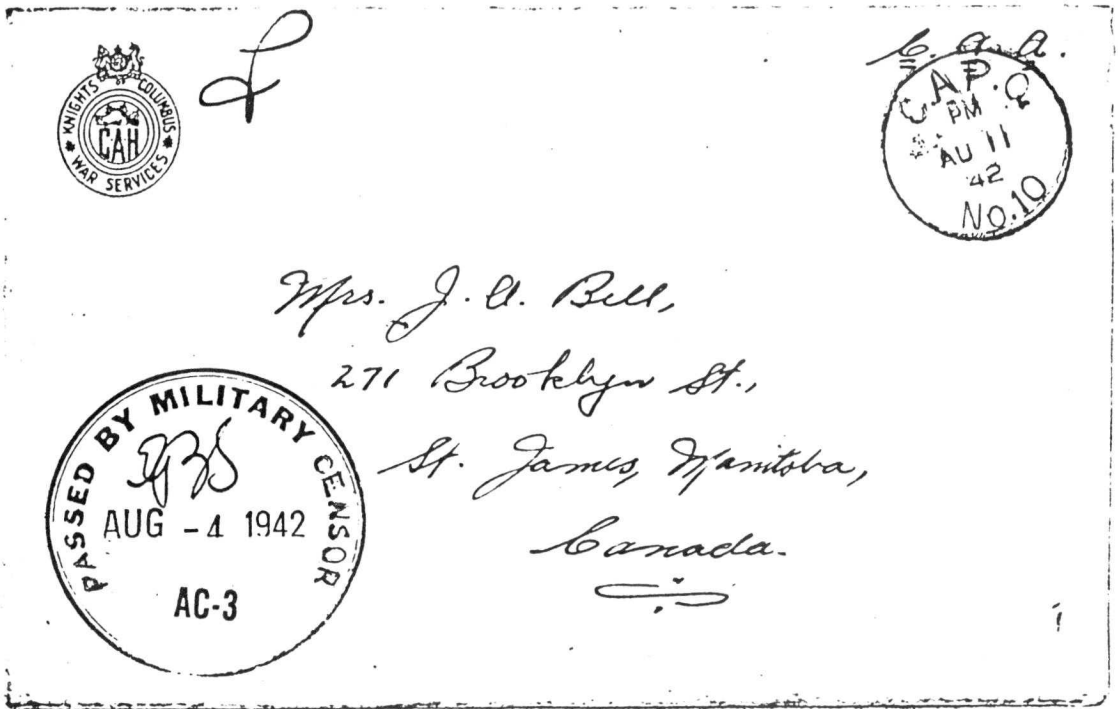 KNIGHTS OF COLUMBUS
CAH
WAR SERVICES
C. A. A.
C.A.P.O
PM
AU 11
42
No.10
Mrs. J. A. Bell,
271 Brooklyn St.,
St. James, Manitoba,
Canada.
PASSED BY MILITARY CENSOR
AUG - 4 1942
AC-3